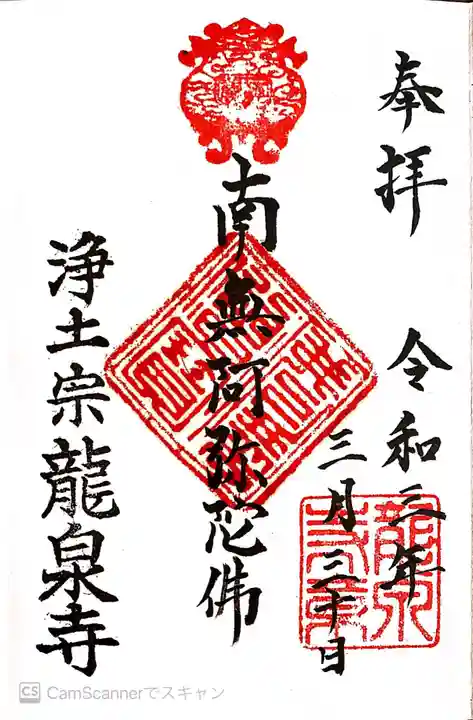 奉拝　令和三年
三月三十日
南無阿弥陀佛
浄土宗龍泉寺
CS CamScannerでスキャン